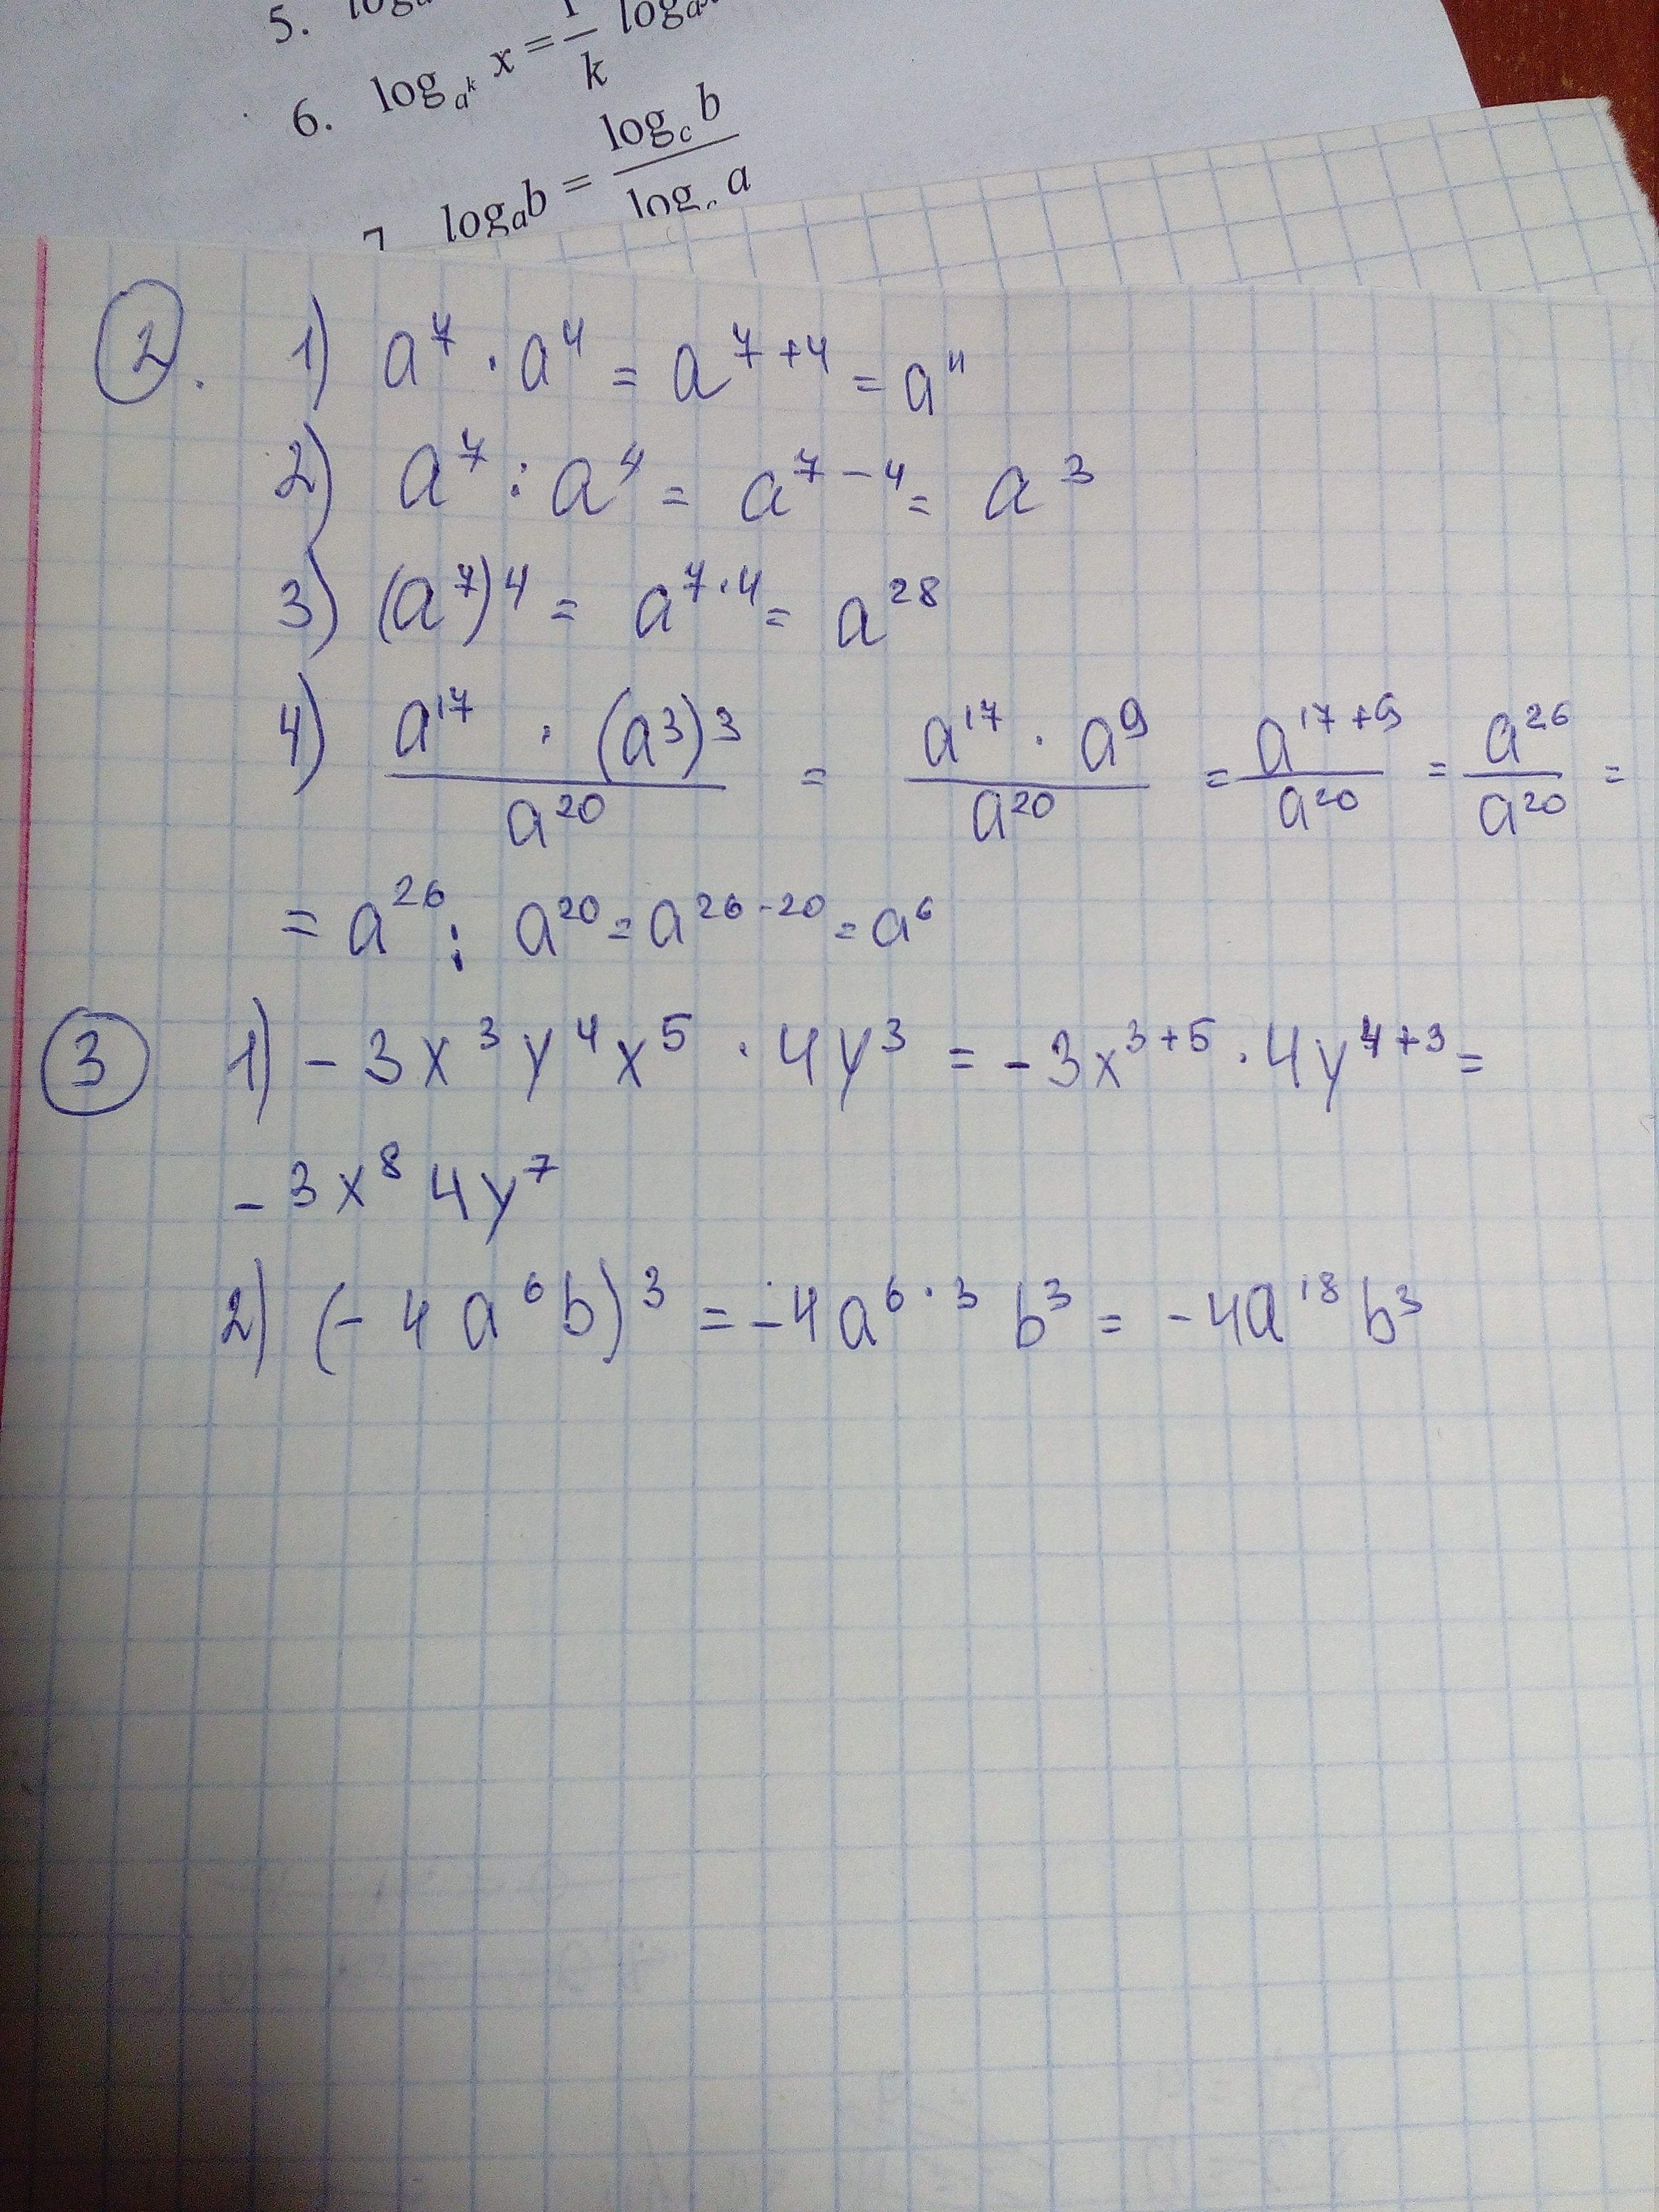 5. log
6. logₐᵏ x = 1/k logₐ
7. logₐb = log_c b / log_c a
2. 1) a⁷ · a⁴ = a⁷⁺⁴ = a¹¹
2) a⁷ : a⁴ = a⁷⁻⁴ = a³
3) (a⁷)⁴ = a⁷·⁴ = a²⁸
4) a¹⁷ · (a³)³ / a²⁰ = a¹⁷ · a⁹ / a²⁰ = a¹⁷⁺⁹ / a²⁰ = a²⁶ / a²⁰ =
= a²⁶ : a²⁰ = a²⁶⁻²⁰ = a⁶
3 1) -3x³y⁴x⁵ · 4y³ = -3x³⁺⁵ · 4y⁴⁺³ =
-3x⁸ 4y⁷
2) (-4a⁶b)³ = -4a⁶·³ b³ = -4a¹⁸b³